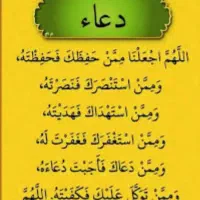 دعاء
اللَّهُمَّ اجْعَلْنَا مِمَّنْ حَفِظَكَ فَحَفِظْتَهُ،
وَمِمَّنْ اسْتَنْصَرَكَ فَنَصَرْتَهُ،
وَمِمَّنْ اسْتَهْدَاكَ فَهَدَيْتَهُ،
وَمِمَّنْ اسْتَغْفَرَكَ فَغَفَرْتَ لَهُ،
وَمِمَّنْ دَعَاكَ فَأَجَبْتَ دُعَاءَهُ،
وَمِمَّنْ تَوَكَّلَ عَلَيْكَ فَكَفَيْتَهُ. اللَّهُمَّ